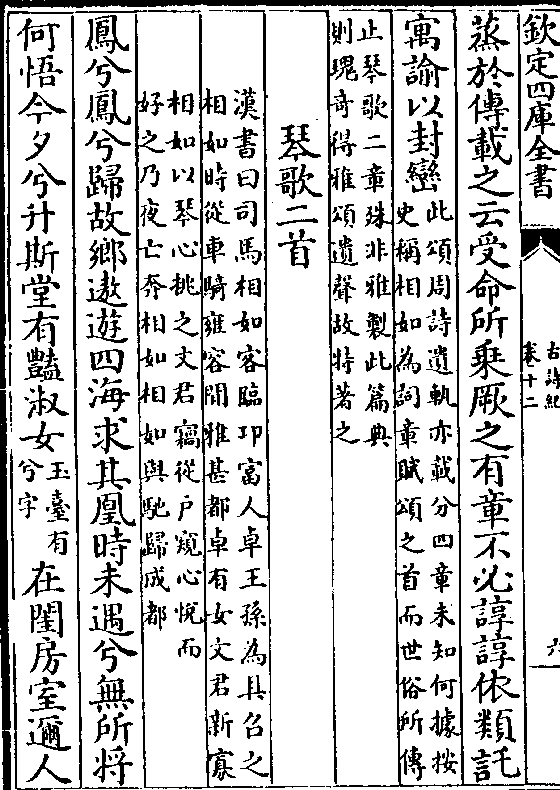 欽定四庫全書
古詩紀
卷十二
六
蒸於傳載之云受命所乘厥之有章不必諄諄依類託
寓諭以封巒
此頌周詩遺軌亦載分四章未知何據按
史稱相如為詞章賦頌之首而世俗所傳
止琴歌二章殊非雅製此篇典
則瑰竒得雅頌遺聲故特著之
琴歌二首
漢書曰司馬相如客臨邛富人卓王孫為具召之
相如時從車騎雍容閒雅甚都卓有女文君新寡
相如以琴心挑之文君竊從戶窺心悅而
好之乃夜亡奔相如相如與馳歸成都
鳳兮鳳兮歸故鄉遨遊四海求其凰時未遇兮無所將
何悟今夕兮升斯堂有豔淑女
玉臺有
兮字
在閨房室邇人